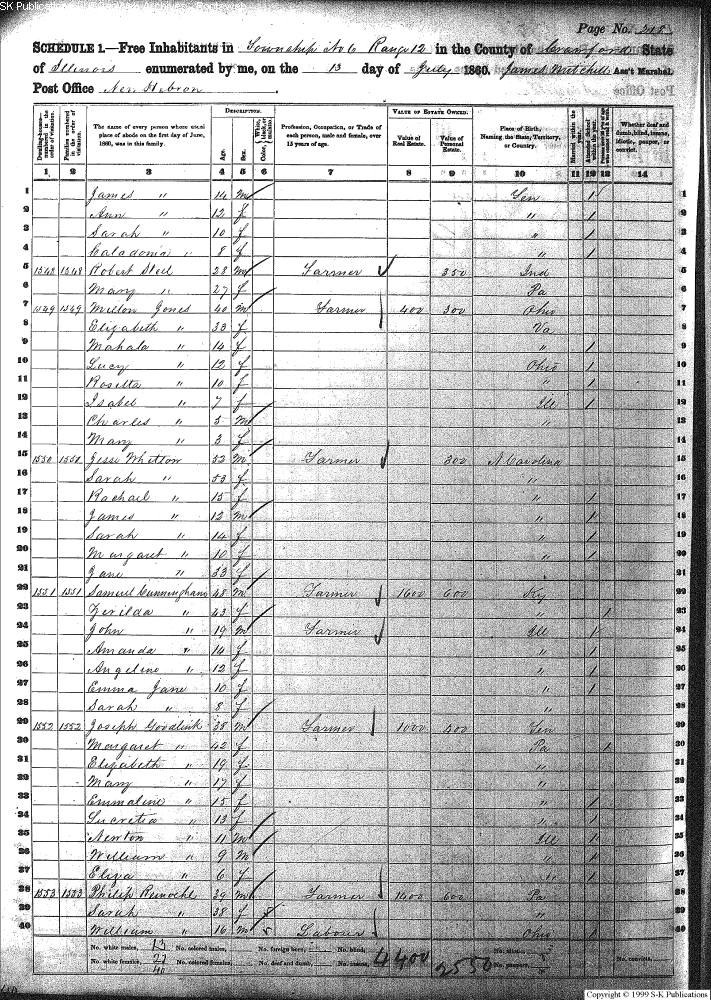 SK Publications
Page No. 218
SCHEDULE 1.—Free Inhabitants in Township No 6 Range 12 in the County of Crawford State
of Illinois enumerated by me, on the 13 day of July 1860. James Mitchell Ass't Marshal.
Post Office New Hebron
Dwelling-houses—numbered in the order of visitation.
Families numbered in the order of visitation.
The name of every person whose usual place of abode on the first day of June, 1860, was in this family.
DESCRIPTION.
Age.
Sex.
Color, White, black, or mulatto.
Profession, Occupation, or Trade of each person, male and female, over 15 years of age.
VALUE OF ESTATE OWNED.
Value of Real Estate.
Value of Personal Estate.
Place of Birth, Naming the State, Territory, or Country.
Married within the year.
Attended School within the year.
Whether deaf and dumb, blind, insane, idiotic, pauper, or convict.
1 2 3 4 5 6 7 8 9 10 11 12 13 14
1 James " 14 m Ten 1 1
2 Ann " 12 f " 1 2
3 Sarah " 10 f " 1 3
4 Caladonia " 8 f " 1 4
5 1548 1548 Robert Steel 28 m Farmer 350 Ind 5
6 Mary " 27 f Pa 6
7 1549 1549 Milton Jones 40 m Farmer 400 300 Ohio 7
8 Elizabeth " 33 f Va 8
9 Mahala " 14 f " 1 9
10 Lucy " 12 f Ohio 1 10
11 Rosetta " 10 f " 1 11
12 Isabel " 7 f Ill 1 12
13 Charles " 5 m " 13
14 Mary " 3 f 14
15 1550 1550 Jesse Whitton 52 m Farmer 300 N Carolina 15
16 Sarah " 53 f " 16
17 Rachael " 15 f " 1 17
18 James " 12 m " 1 18
19 Sarah " 14 f " 1 19
20 Margaret " 10 f " 1 20
21 Jane " 33 f 21
22 1551 1551 Samuel Cunningham 48 m Farmer 1600 600 Ky 22
23 Zerilda " 43 f " 1 23
24 John " 19 m Farmer Ill 1 24
25 Amanda " 14 f " 1 25
26 Angeline " 12 f " 1 26
27 Emma Jane 10 f " 1 27
28 Sarah " 8 f " 28
29 1552 1552 Joseph Goodlink 38 m Farmer 1000 500 Ten 29
30 Margaret " 42 f Pa 1 30
31 Elizabeth " 19 f " 31
32 Mary " 17 f " 32
33 Emmaline " 15 f " 1 33
34 Lucretia " 13 f " 1 34
35 Newton " 11 m Ill 1 35
36 William " 9 m " 1 36
37 Eliza " 6 f " 1 37
38 1553 1553 Philip 39 m Farmer 1400 600 Pa 38
39 Sarah " 38 f " 39
40 William " 16 m Labour Ohio 1 40
No. white males, 13 No. colored males, No. foreign born, No. blind, No. idiotic,
No. white females, 27 No. colored females, No. deaf and dumb, No. insane, 4400 2550 No. paupers, No. convicts,
40
Copyright © 1999 S-K Publications